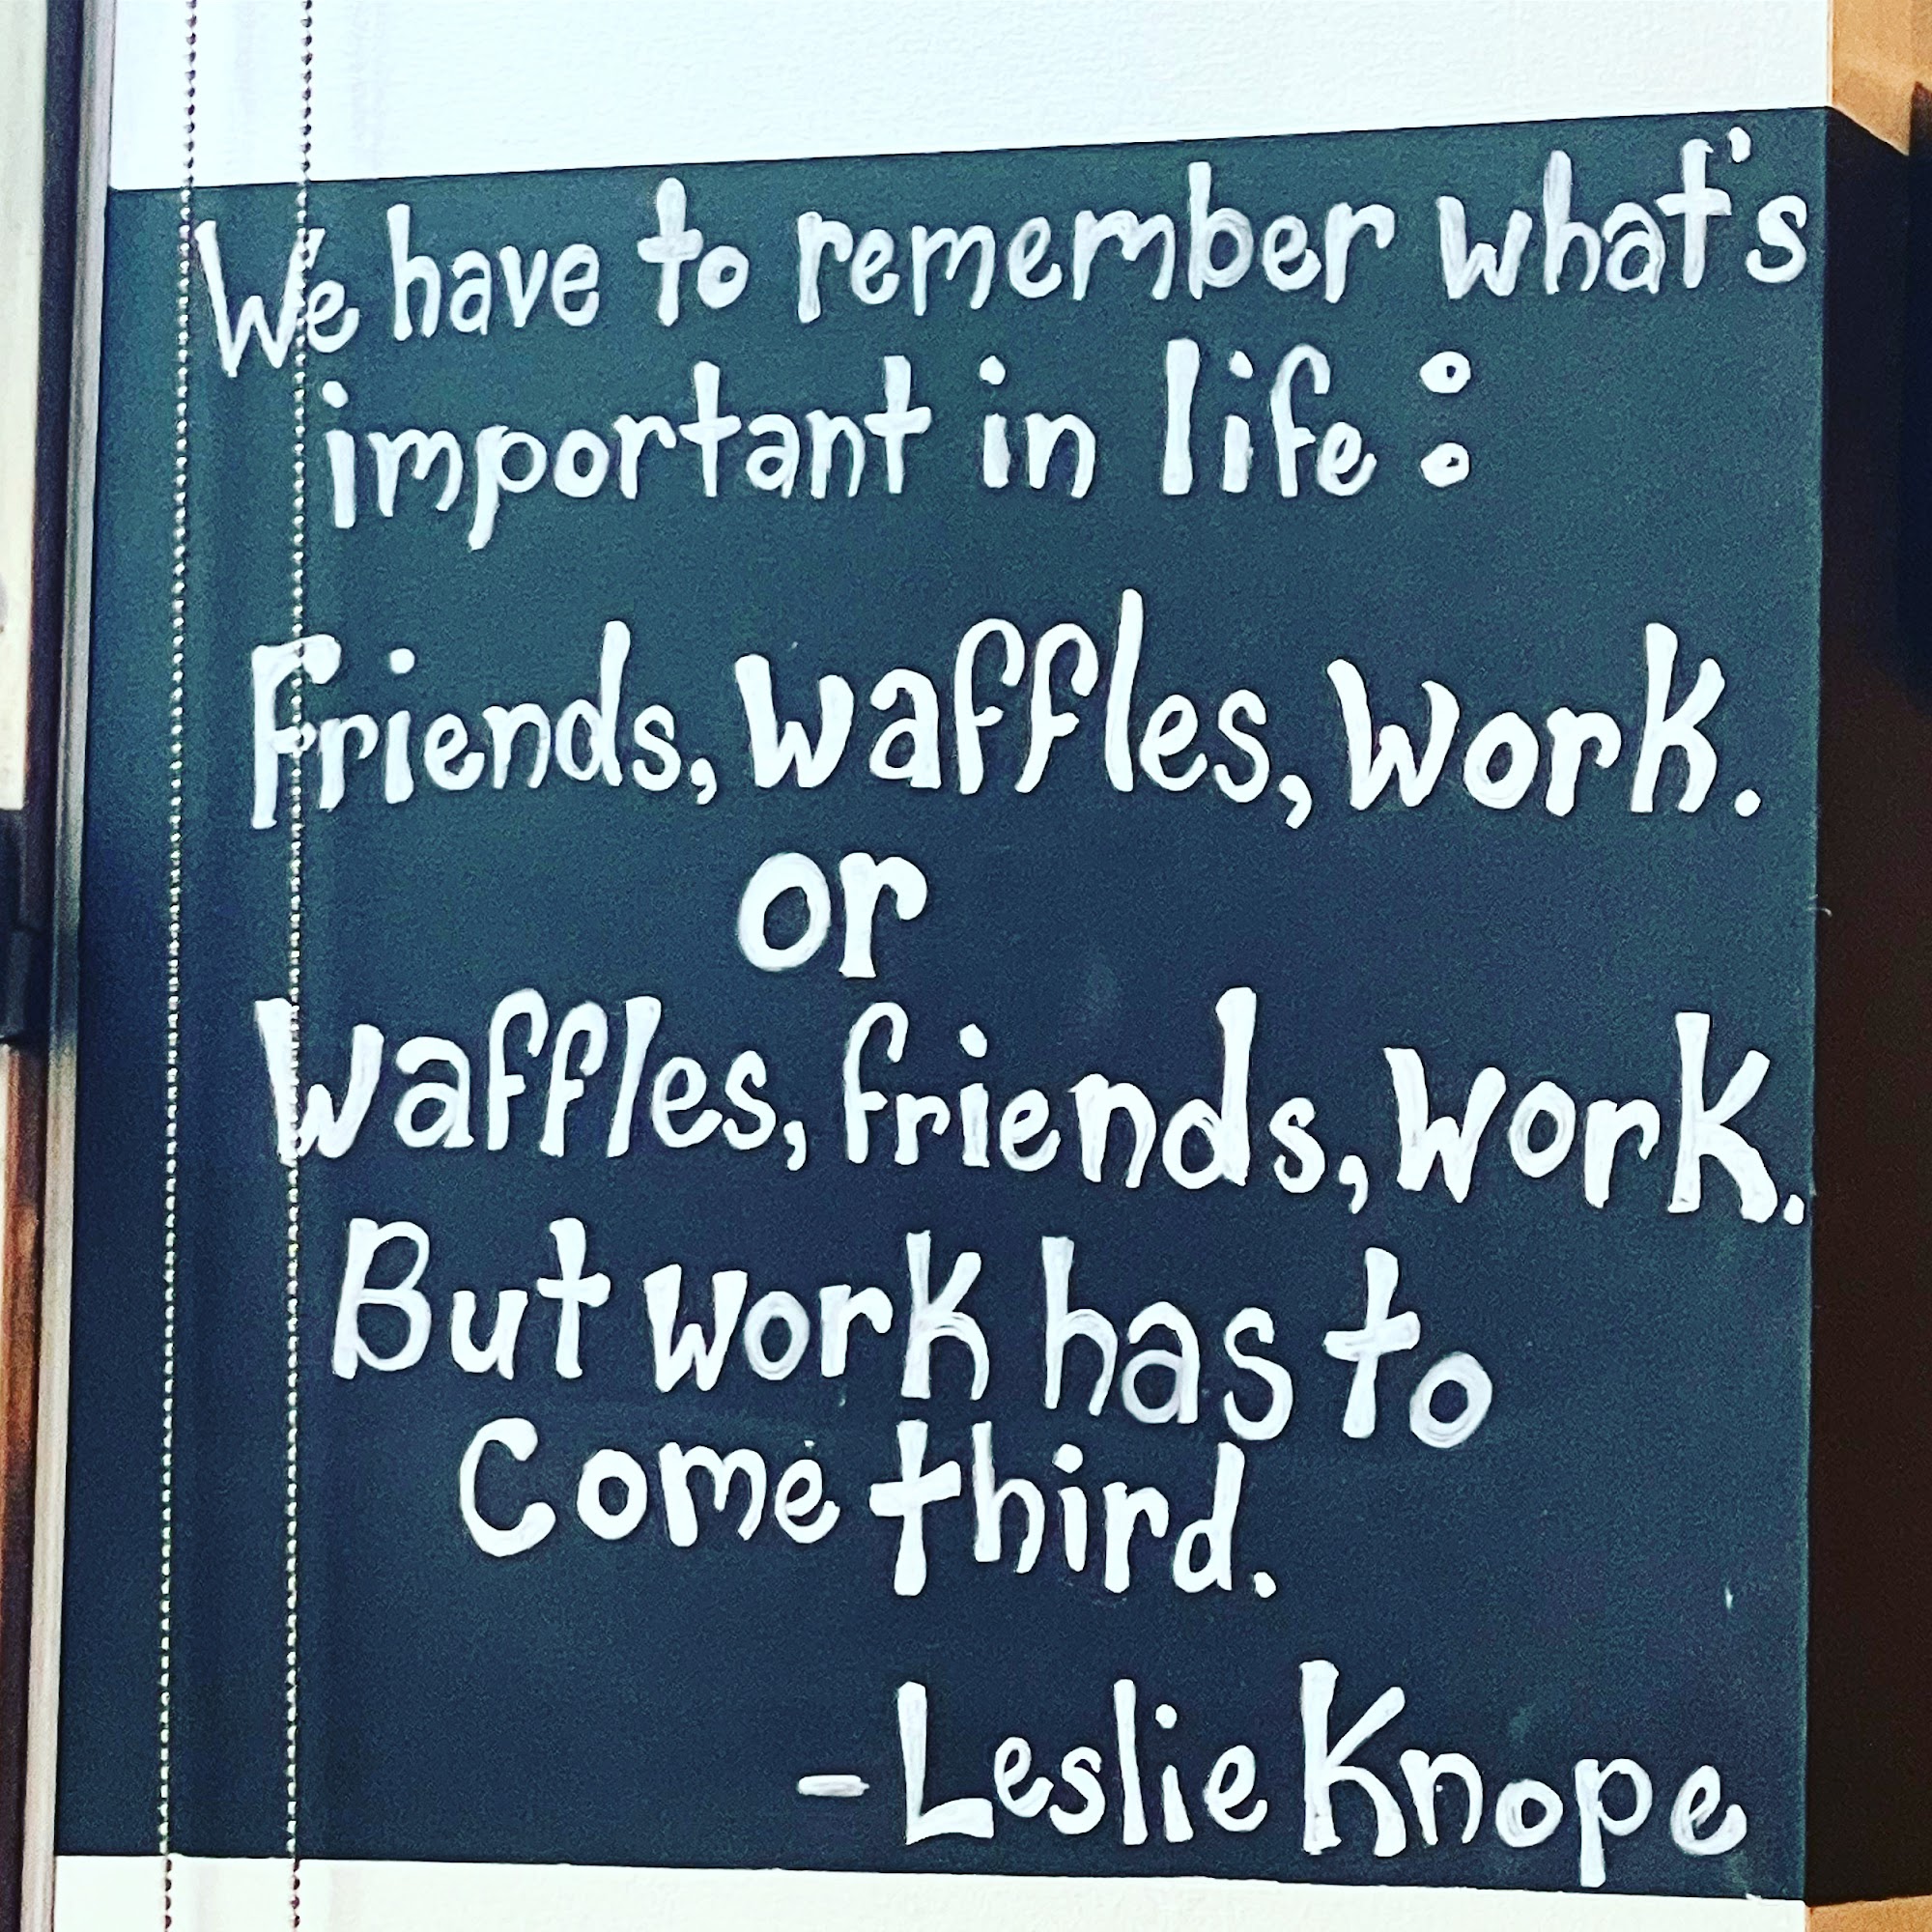 We have to remember what's
important in life:
Friends, waffles, work.
or
Waffles, friends, work.
But work has to
Come third.
- Leslie Knope